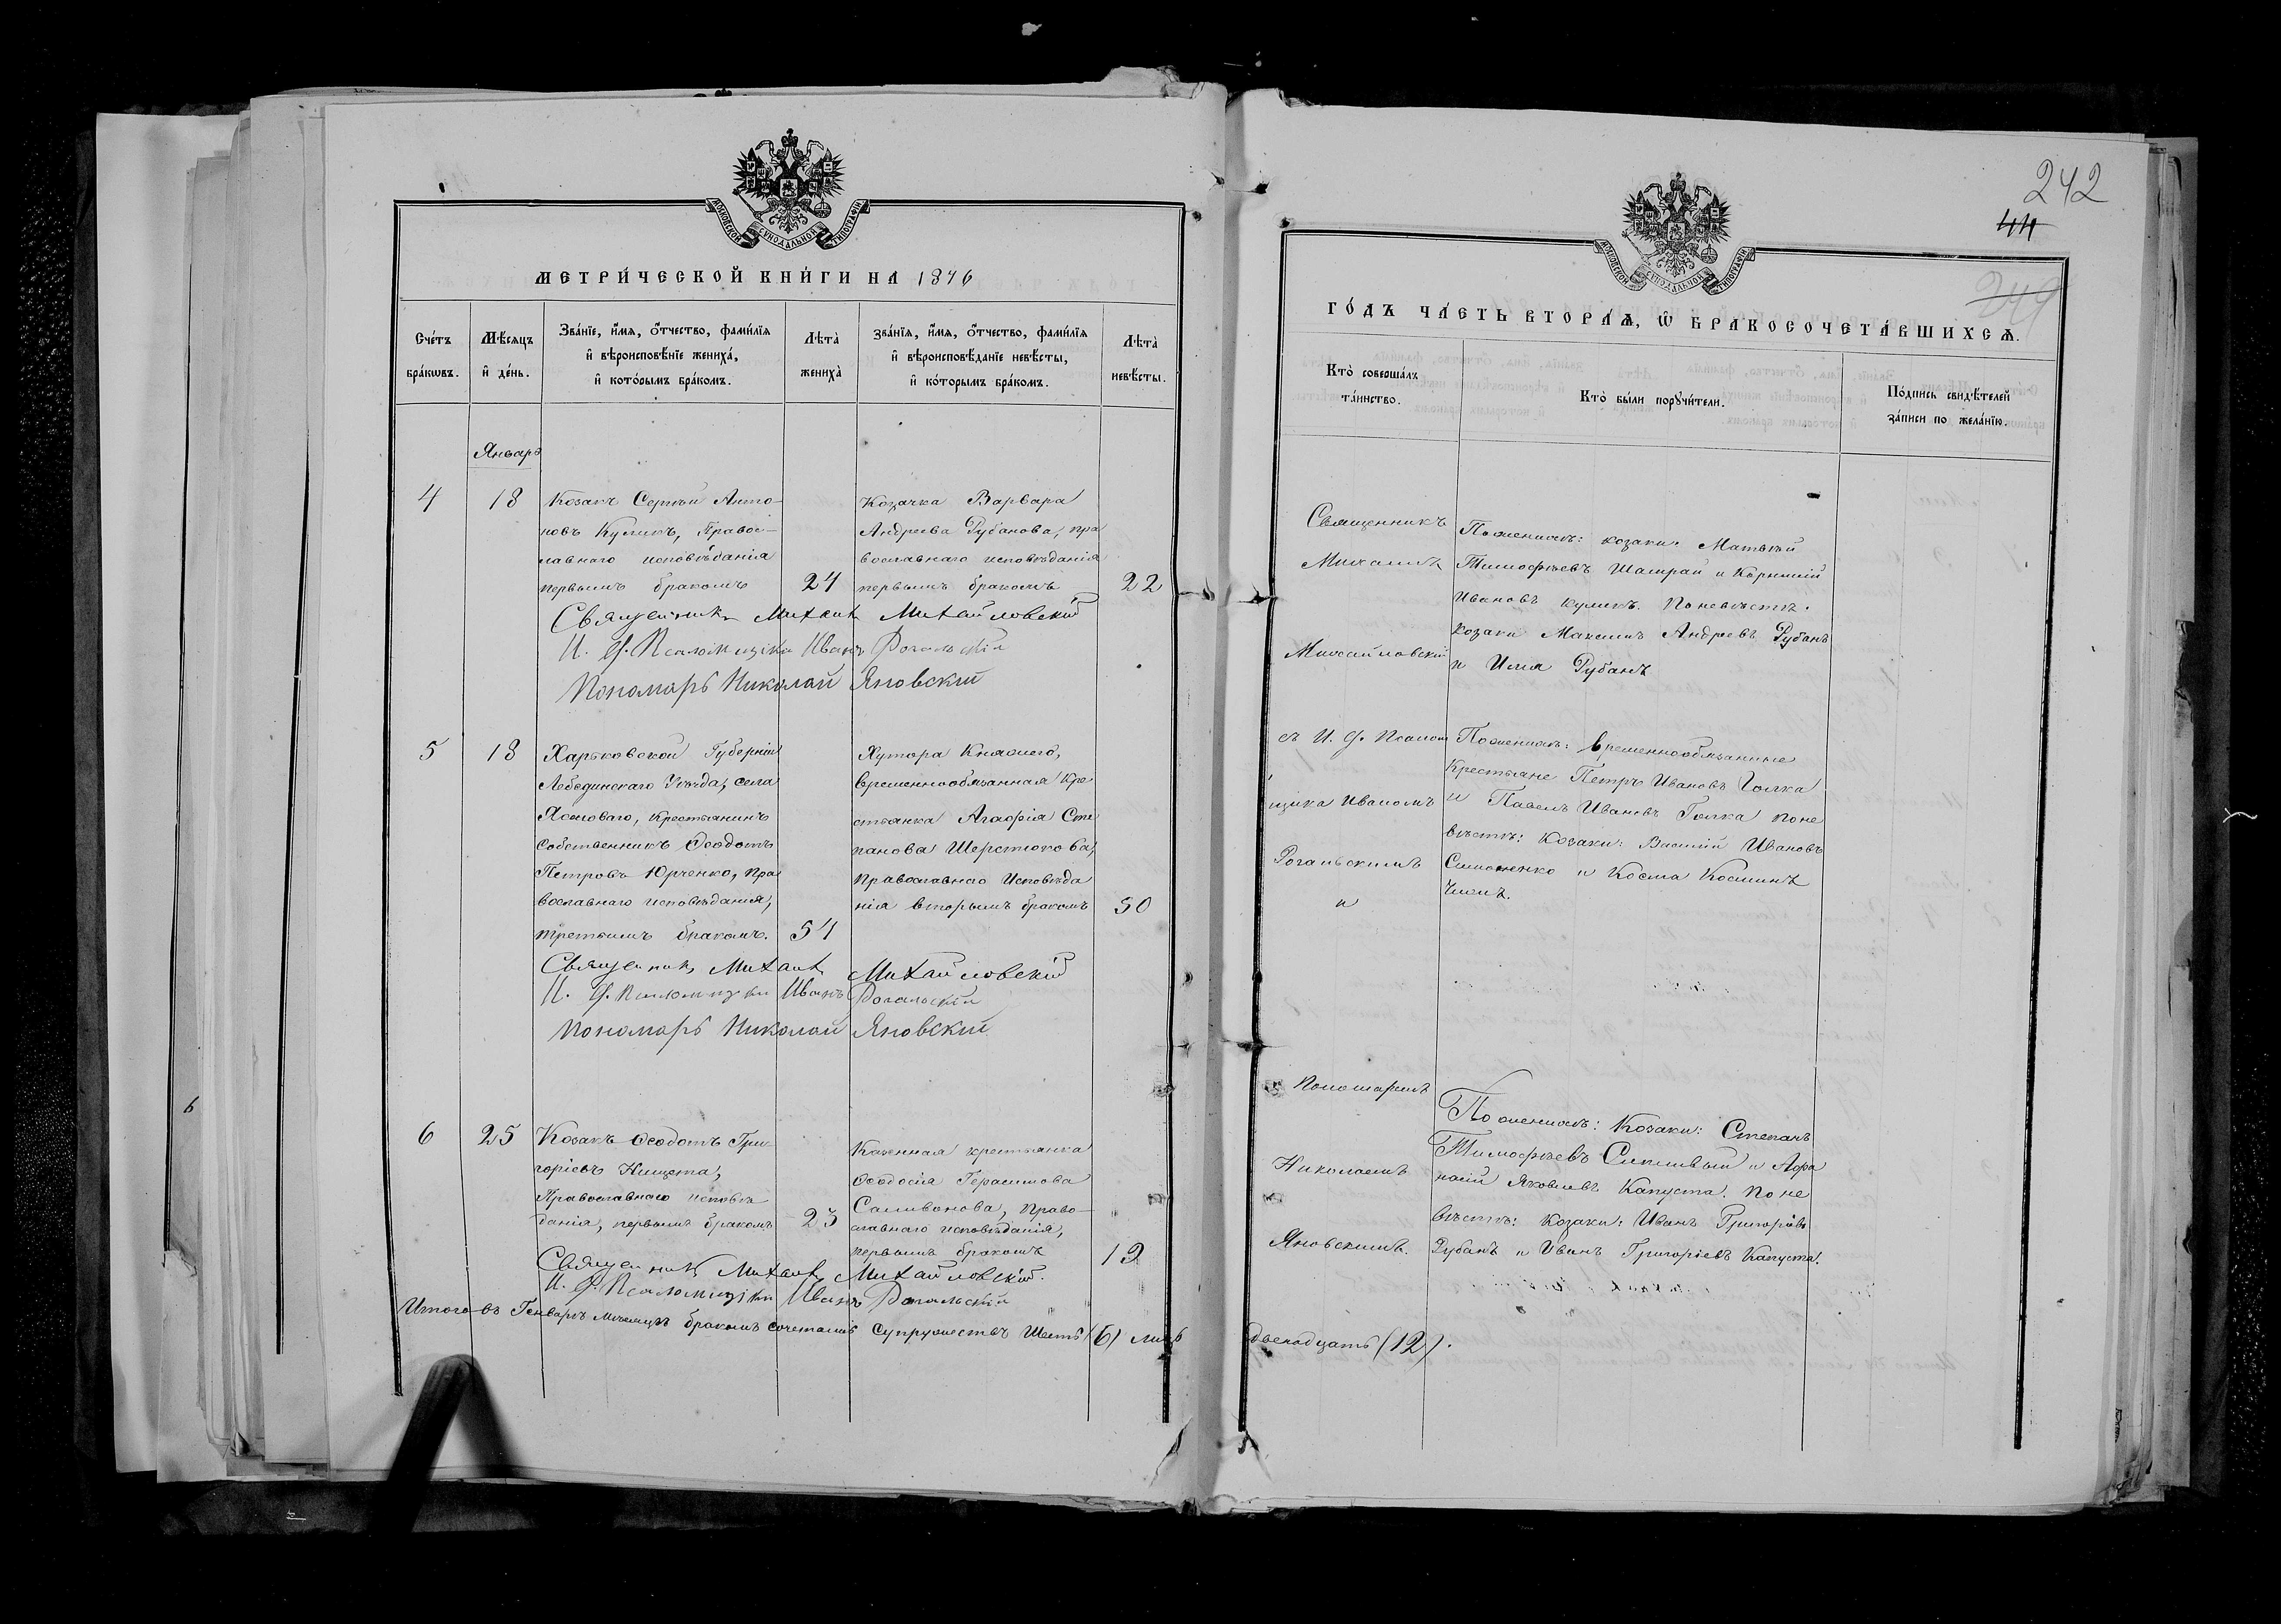 МОСКОВСКОЙ СУНОДАЛЬНОЙ ТИПОГРАФІИ
МЕТРИ́ЧЕСКОЙ КНИ́ГИ НА 1876
Сче́тъ бра́кωвъ.
Мѣ́сяцъ и҆ де́нь.
Зва́нїе, и҆́мя, ѻ҆́тчество, фами́лїя
и҆ вѣроисповѣ́нїе жениха̀,
и҆ кото́рымъ бра́комъ.
Лѣта̀ жениха̀
зва́нїя, и҆́мя, ѻ҆́тчество, фами́лїя
и҆ вѣроисповѣ́данїе невѣ́сты,
и҆ ко́торымъ бра́комъ.
Лѣта̀ невѣ́сты.
Январь
4
18
Козакъ Сергѣй Анто-
новъ Куликъ, Правос-
лавнаго исповѣданія
первымъ бракомъ
24
Козачка Варвара
Андреева Рубанова, пра
вославнаго исповѣданія
первымъ бракомъ
22
Священникъ Михаилъ Михайловскій
И. д. Псаломщика Иванъ Рогальскій
Пономарь Николай Яновскій
5
18
Харьковской Губерніи
Лебединскаго Уѣзда, села
Крестьянинъ
Собственникъ Ѳеодотъ
Петровъ Юрченко, пра
вославнаго исповѣданія,
третьимъ бракомъ.
54
Хутора Княжего,
временнообязанная кре
стьянка Агафія Сте
панова Шерстюкова,
Православнаго Исповѣда
нія вторымъ бракомъ
50
Священникъ Михаилъ Михайловскій
И. д. Псаломщика Иванъ Рогальскій
Пономарь Николай Яновскій
6
25
Козакъ Ѳеодотъ Гри-
горіевъ Нищета,
Православнаго исповѣ
данія, первымъ бракомъ
23
Казенная крестьянка
Ѳеодосія Герасимова
Саливонова, Право-
славнаго исповѣданія,
первымъ бракомъ
19
Священникъ Михаилъ Михайловскій.
И. д. Псаломщика Иванъ Рогальскій
Итого въ Генварѣ мѣсяцѣ бракомъ сочеталиь супружествъ Шесть (6) лицъ
242
44
249
МОСКОВСКОЙ СУНОДАЛЬНОЙ ТИПОГРАФІИ
ГО́ДЪ ЧА́СТЬ ВТОРА́Ѧ, Ѽ БРАКОСОЧЕТА́ВШИХСѦ.
Кто̀ соверша́лъ та́инство.
Кто̀ бы́ли порꙋчи́тели.
По́дпись свидѣ́телей за́писи по жела́нїю.
Священникъ
Михаилъ
Михайловскій
съ И. д. Псалом
щика Иваномъ
Рогальскимъ
и
Пономаремъ
Николаемъ
Яновскимъ.
По женихѣ: козаки: Матвѣй
Тимофѣевъ Шамрай и Корнилій
Ивановъ Куликъ. По невѣстѣ:
Козаки Максимъ Андреевъ Рубанъ
и Илія Рубанъ
По женихѣ: временнообязанные
Крестьяне Петръ Ивановъ Голка
и Павелъ Ивановъ Голка по не
вѣстѣ: Козаки: Василій Ивановъ
Симоненко и Косма Косминъ
По женихѣ: Козаки: Степанъ
Тимофѣевъ Сипливый и Афа
насій Яковлевъ Капуста. По не
вѣстѣ: козаки: Иванъ Григорьевъ
Рубанъ и Иванъ Григоріевъ Капуста.
двенадцать (12).